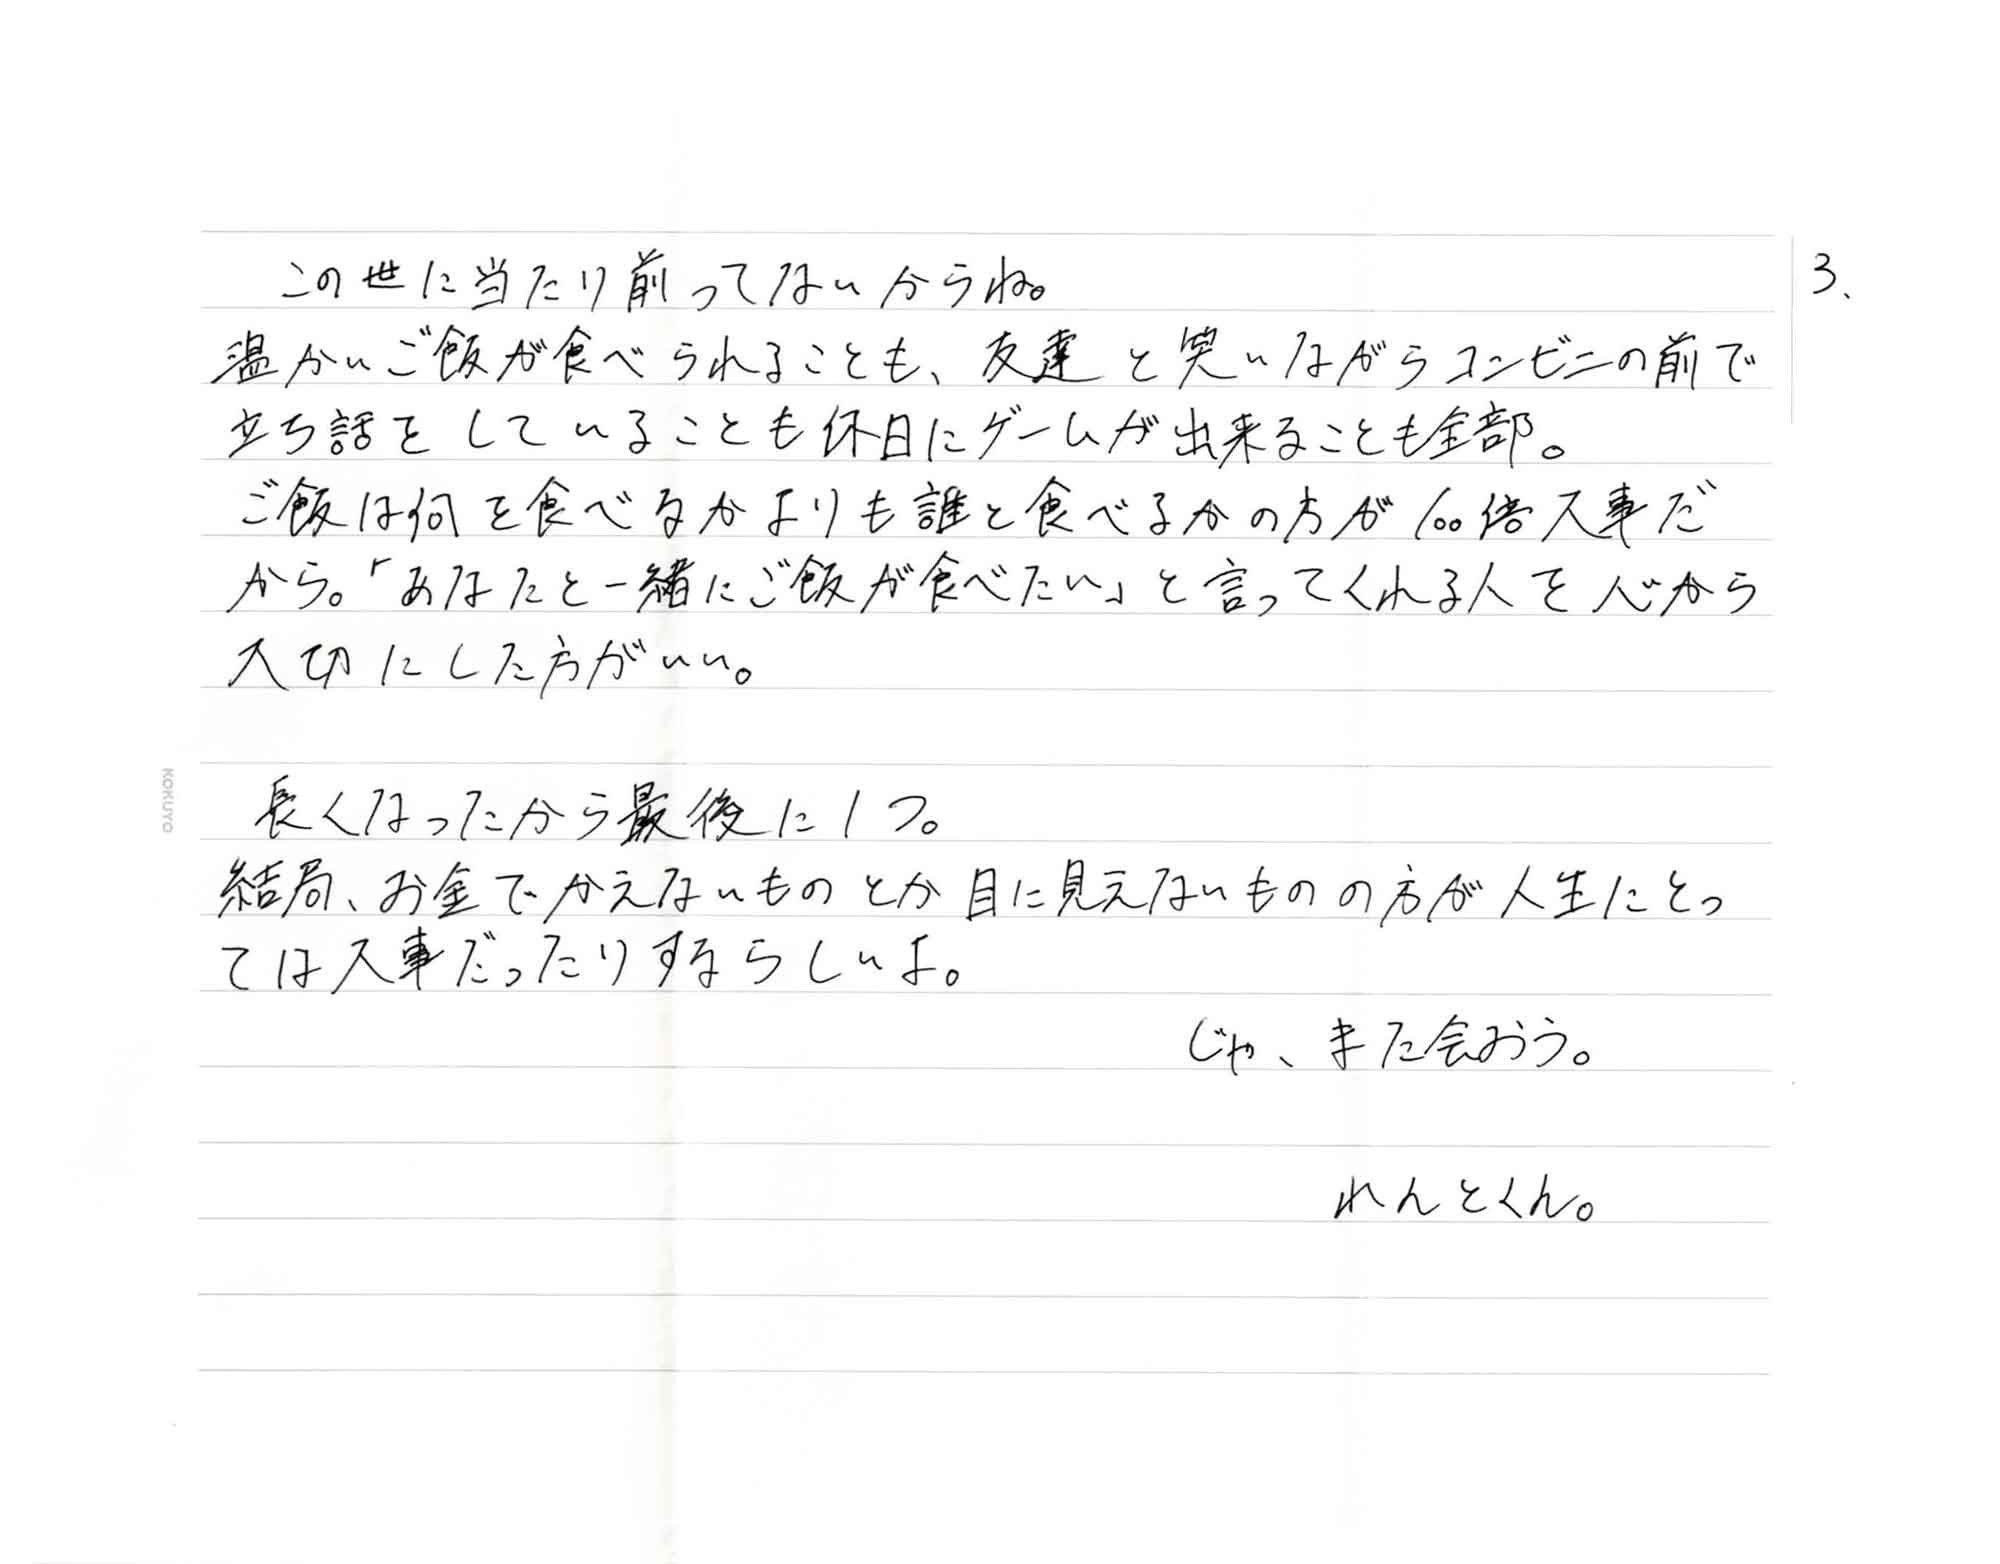 3、
この世に当たり前ってないからね。
温かいご飯が食べられることも、友達と笑いながらコンビニの前で
立ち話をしていることも休日にゲームが出来ることも全部。
ご飯は何を食べるかよりも誰と食べるかの方が100倍大事だ
から。「あなたと一緒にご飯が食べたい」と言ってくれる人を心から
大切にした方がいい。
長くなったから最後に1つ。
結局、お金でかえないものとか目に見えないものの方が人生にとっ
ては大事だったりするらしいよ。
じゃ、また会おう。
れんとくん。
KOKUYO